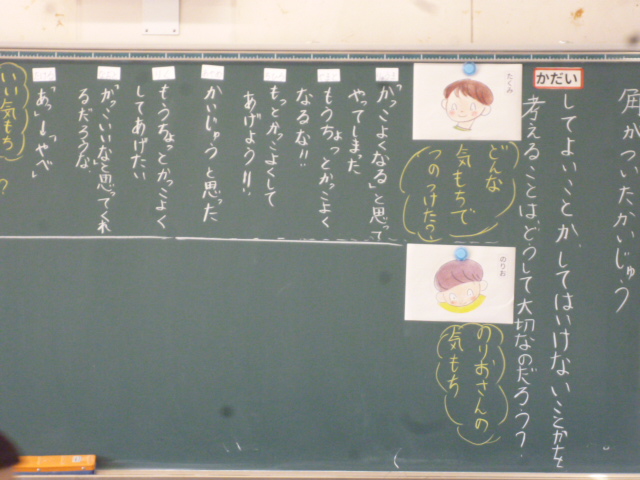 角がついたかいじゅう
かだい
してよいことか、してはいけないことかを
考えることは、どうして大切なのだろう？
たくみ
どんな
気もちで
つのつけた？
のりお
のりおさんの
気もち
「かっこよくなる」と思って
やってしまった
もうちょっとかっこよく
なるな!!
もっとかっこよくして
あげよう!!
かいじゅうと思った
もうちょっとかっこよく
してあげたい
「かっこいいな」と思ってくれ
るだろうな。
「あっ」「しゃべ」
いい気もち？